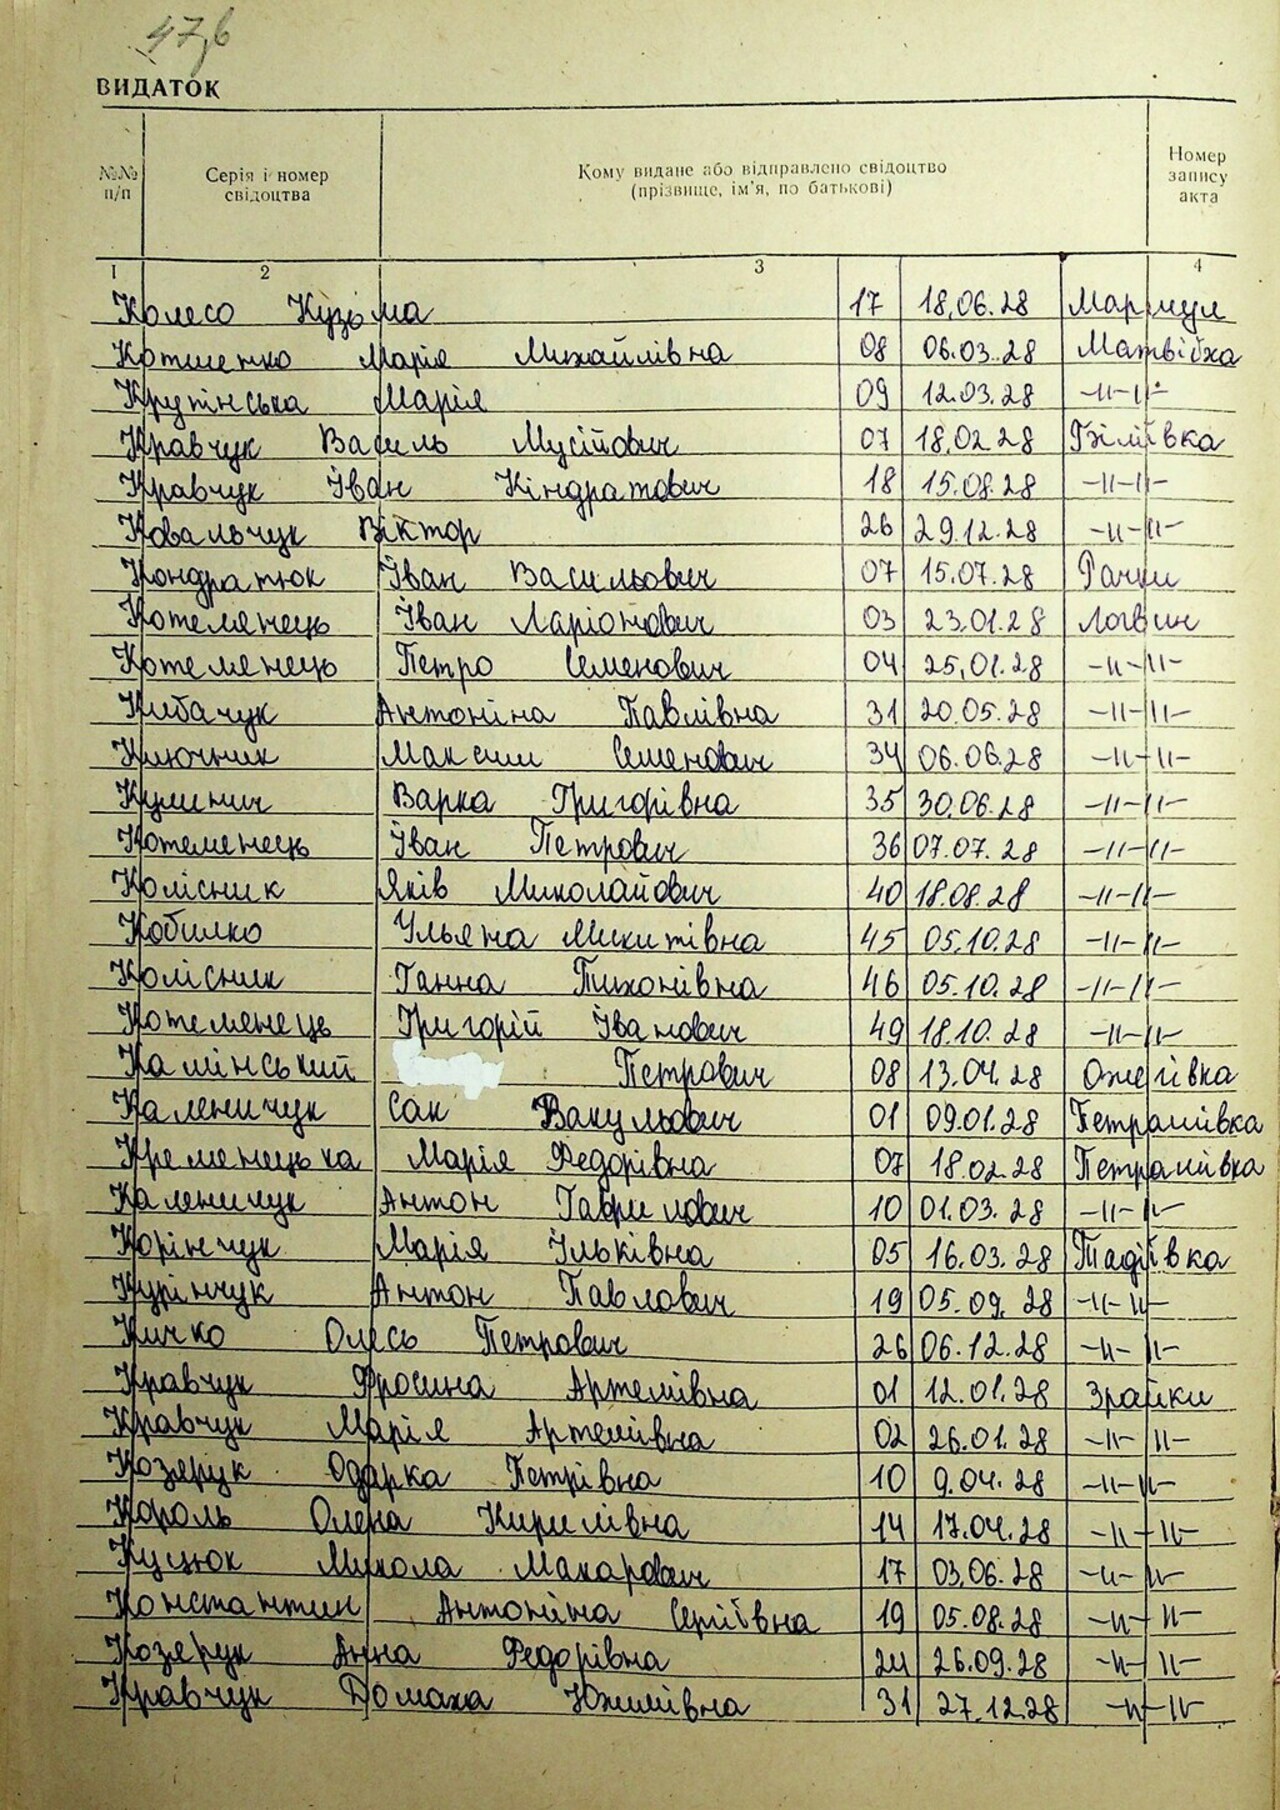 47,6
ВИДАТОК
№№ п/п Серія і номер свідоцтва Кому видане або відправлено свідоцтво (прізвище, ім'я, по батькові) Номер запису акта
1 2 3 4
Колесо Кузьма 17 18.06.28 Мармул
Котленко Марія Михайлівна 08 06.03.28 Матвіїха
Крутінська Марія 09 12.03.28 -ıı-ıı-
Кравчук Василь Мусійович 07 18.02.28
Кравчук Іван Кіндратович 18 15.08.28 -ıı-ıı-
Ковальчук Віктор 26 29.12.28 -ıı-ıı-
Кондратюк Іван Васильович 07 15.07.28 Рачки
Котеленець Іван Ларіонович 03 23.01.28 Логвин
Котеленець Петро Семенович 04 25.01.28 -ıı-ıı-
Кибачук Антоніна Павлівна 31 20.05.28 -ıı-ıı-
Ключник Максим Семенович 34 06.06.28 -ıı-ıı-
Кулинич Варка Григорівна 35 30.06.28 -ıı-ıı-
Котеленець Іван Петрович 36 07.07.28 -ıı-ıı-
Колісник Яків Миколайович 40 18.08.28 -ıı-ıı-
Кобилко Ульяна Микитівна 45 05.10.28 -ıı-ıı-
Колісник Ганна Тихонівна 46 05.10.28 -ıı-ıı-
Котеленець Григорій Іванович 49 18.10.28 -ıı-ıı-
Камінський Петрович 08 13.04.28 Ожегівка
Каленичук Сак Вакульович 01 09.01.28 Петрашівка
Кременецька Марія Федорівна 07 18.02.28 Петрашівка
Каленичук Антон Гаврилович 10 01.03.28 -ıı-ıı-
Корінчук Марія Ільківна 05 16.03.28 Тадіївка
Курінчук Антон Павлович 19 05.09.28 -ıı-ıı-
Кичко Олесь Петрович 26 06.12.28 -ıı-ıı-
Кравчук Фросина Артемівна 01 12.01.28 Зрайки
Кравчук Марія Артемівна 02 26.01.28 -ıı-ıı-
Козярук Одарка Петрівна 10 9.04.28 -ıı-ıı-
Король Олена Кирилівна 14 17.04.28 -ıı-ıı-
Куцюк Микола Макарович 17 03.06.28 -ıı-ıı-
Константин Антоніна Сергіївна 19 05.08.28 -ıı-ıı-
Козярук Анна Федорівна 24 26.09.28 -ıı-ıı-
Кравчук Домаха Юхимівна 31 27.12.28 -ıı-ıı-